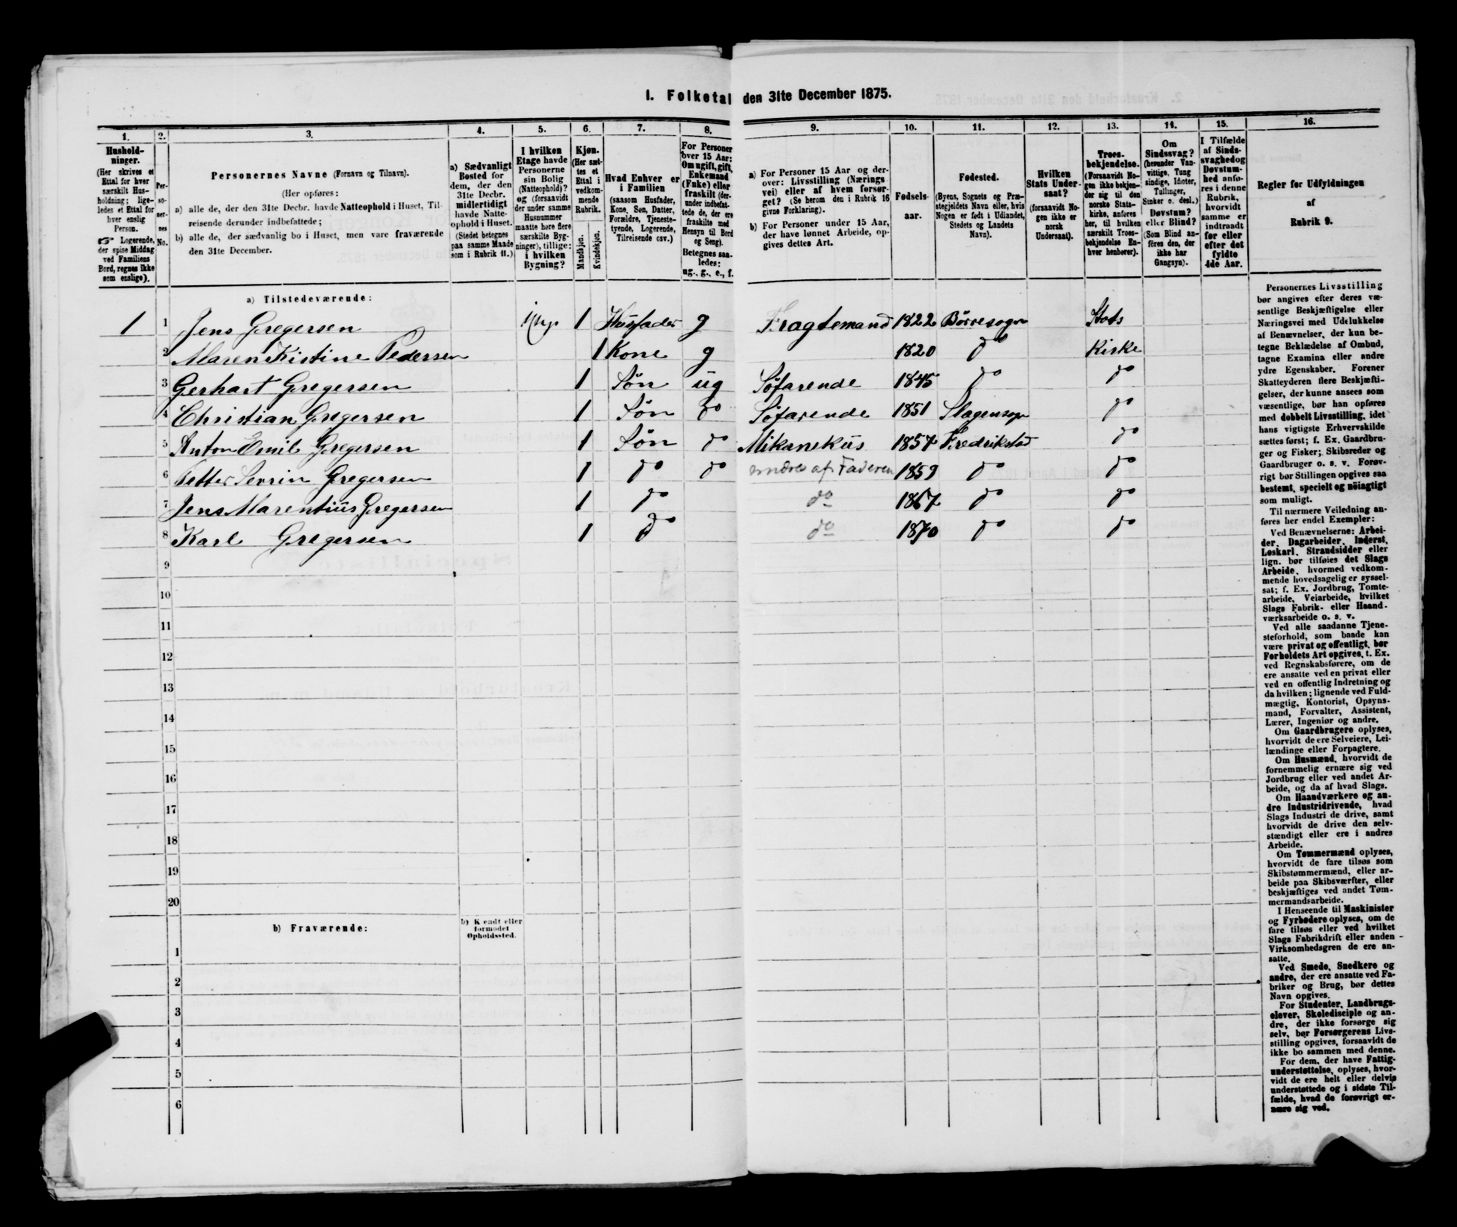 I. Folketal den 31te December 1875.
1. 2. 3. 4. 5. 6. 7. 8. 9. 10. 11. 12. 13. 14. 15. 16.
Hushold-
ninger.
(Her skrives et
Ettal for hver
særskilt Hus-
holdning; lige-
ledes et Ettal for
hver enslig
Person.
☞ Logerende,
der spise Middag
ved Familiens
Bord, regnes ikke
som enslige).
Per-
so-
ner-
nes
No.
Personernes Navne (Fornavn og Tilnavn).
(Her opføres:
a) alle de, der den 31te Decbr. havde Natteophold i Huset, Til-
reisende derunder indbefattede;
b) alle de, der sædvanlig bo i Huset, men vare fraværende
den 31te December.
a) Sædvanligt
Bosted for
dem, der den
31te Decbr.
midlertidigt
havde Natte-
ophold i Huset.
(Stedet betegnes
paa samme Maade
som i Rubrik 11.)
I hvilken
Etage havde
Personerne
sin Bolig
(Natteophold)?
og (forsaavidt
der under samme
Husnummer
maatte høre flere
særskilte Byg-
ninger), tillige:
i hvilken
Bygning?
Kjøn.
(Her sæt-
tes et
Ettal i
vedkom-
mende
Rubrik.
Mandkjøn.
Kvindekjøn.
Hvad Enhver er
i Familien
(saasom Husfader,
Kone, Søn, Datter,
Forældre, Tjeneste-
tyende, Logerende,
Tilreisende osv.)
For Personer
over 15 Aar:
Om ugift, gift,
Enkemand
(Enke) eller
fraskilt (der-
under indbefat-
tede de, der ere
fraskilte med
Hensyn til Bord
og Seng).
Betegnes saa-
ledes:
ug., g., e., f.
a) For Personer 15 Aar og der-
over: Livsstilling (Nærings-
vei) eller af hvem forsør-
get? (Se herom den i Rubrik 16
givne Forklaring).
b) For Personer under 15 Aar,
der have lønnet Arbeide, op-
gives dettes Art.
Fødsels-
aar.
Fødested.
(Byens, Sognets og Præ-
stegjeldets Navn eller, hvis
Nogen er født i Udlandet,
Stedets og Landets
Navn).
Hvilken
Stats Under-
saat?
(forsaavidt No-
gen ikke er
norsk
Undersaat).
Troes-
bekjendelse.
(Forsaavidt No-
gen ikke bekjen-
der sig til den
norske Stats-
kirke, anføres
her, til hvilken
særskilt Troes-
bekjendelse En-
hver henhører).
Om
Sindssvag?
(herunder Van-
vittige, Tung-
sindige, Idioter,
Tullinger,
Sinker o. desl.)
Døvstum?
eller Blind?
(Som Blind an-
føres den, der
ikke har
Gangsyn).
I Tilfælde
af Sinds-
svaghed og
Døvstum-
hed anfø-
res i denne
Rubrik,
hvorvidt
samme er
indtraadt
før eller
efter det
fyldte
4de Aar.
Regler for Udfyldningen
af
Rubrik 9.
a) Tilstedeværende:
1 1 Jens Gregersen 1 Husfader g Fragtemand 1822 Borresogn Stats
2 Maren Kistine Pedersen 1 Kone g 1820 do Kirke
3 Gerhart Gregersen 1 Søn ug Søfarende 1845 do do
4 Christian Gregersen 1 Søn do Søfarende 1851 Slagensogn do
5 Anton Emil Gregersen 1 Søn do Mikanekus 1857 Fredrikstad do
6 Petter Sevrin Gregersen 1 do do ernæres af Faderen 1859 do do
7 Jens Marentius Gregersen 1 do do 1867 do do
8 Karl Gregersen 1 do do 1870 do do
9
10
11
12
13
14
15
16
17
18
19
20
b) Fraværende:
b) Kjendt eller
formodet
Opholdssted.
1
2
3
4
5
6
Personernes Livsstilling
bør angives efter deres væ-
sentlige Beskjæftigelse eller
Næringsvei med Udelukkelse
af Benævnelser, der kun be-
tegne Beklædelse af Ombud,
tagne Examina eller andre
ydre Egenskaber. Forener
Skatteyderen flere Beskjæfti-
gelser, der kunne ansees som
væsentlige, bør han opføres
med dobbelt Livsstilling, idet
hans vigtigste Erhvervskilde
sættes først; f. Ex. Gaardbru-
ger og Fisker; Skibsreder og
Gaardbruger o. s. v. Forøv-
rigt bør Stillingen opgives saa
bestemt, specielt og nøiagtigt
som muligt.
Til nærmere Veiledning an-
føres her endel Exempler:
Ved Benævnelserne: Arbei-
der, Dagarbeider, Inderst,
Løskarl, Strandsidder eller
lign. bør tilføies det Slags
Arbeide, hvormed vedkom-
mende hovedsagelig er syssel-
sat; f. Ex. Jordbrug, Tomte-
arbeide, Veiarbeide, hvilket
Slags Fabrik- eller Haand-
værksarbeide o. s. v.
Ved alle saadanne Tjene-
steforhold, som baade kan
være privat og offentligt, bør
Forholdets Art opgives, t. Ex.
ved Regnskabsførere, om de
ere ansatte ved en privat eller
ved en offentlig Indretning og
da hvilken; lignende ved Fuld-
mægtig, Kontorist, Opsyns-
mand, Forvalter, Assistent,
Lærer, Ingeniør og andre.
Om Gaardbrugere oplyses,
hvorvidt de ere Selveiere, Lei-
lændinge eller Forpagtere.
Om Husmænd, hvorvidt de
fornemmelig ernære sig ved
Jordbrug eller ved andet Ar-
beide, og da af hvad Slags.
Om Haandværkere og an-
dre Industridrivende, hvad
Slags Industri de drive, samt
hvorvidt de drive den selv-
stændigt eller ere i andres
Arbeide.
Om Tømmermænd oplyses,
hvorvidt de fare tilsøs som
Skibstømmermænd, eller ar-
beide paa Skibsværfter, eller
beskjæftiges ved andet Tøm-
mermandsarbeide.
I Henseende til Maskinister
og Fyrbødere oplyses, om de
fare tilsøs eller ved hvilket
Slags Fabrikdrift eller anden
Virksomhedsgren de ere an-
satte.
Ved Smede, Snedkere og
andre, der ere ansatte ved Fa-
briker og Brug, bør dettes
Navn opgives.
For Studenter, Landbrugs-
elever, Skoledisciple og an-
dre, der ikke forsørge sig
selv, bør Forsørgerens Livs-
stilling opgives, forsaavidt de
ikke bo sammen med denne.
For dem, der have Fattig-
understøttelse, oplyses, hvor-
vidt de ere helt eller delvis
understøttede og i sidste Til-
fælde, hvad de forøvrigt er-
nære sig ved.